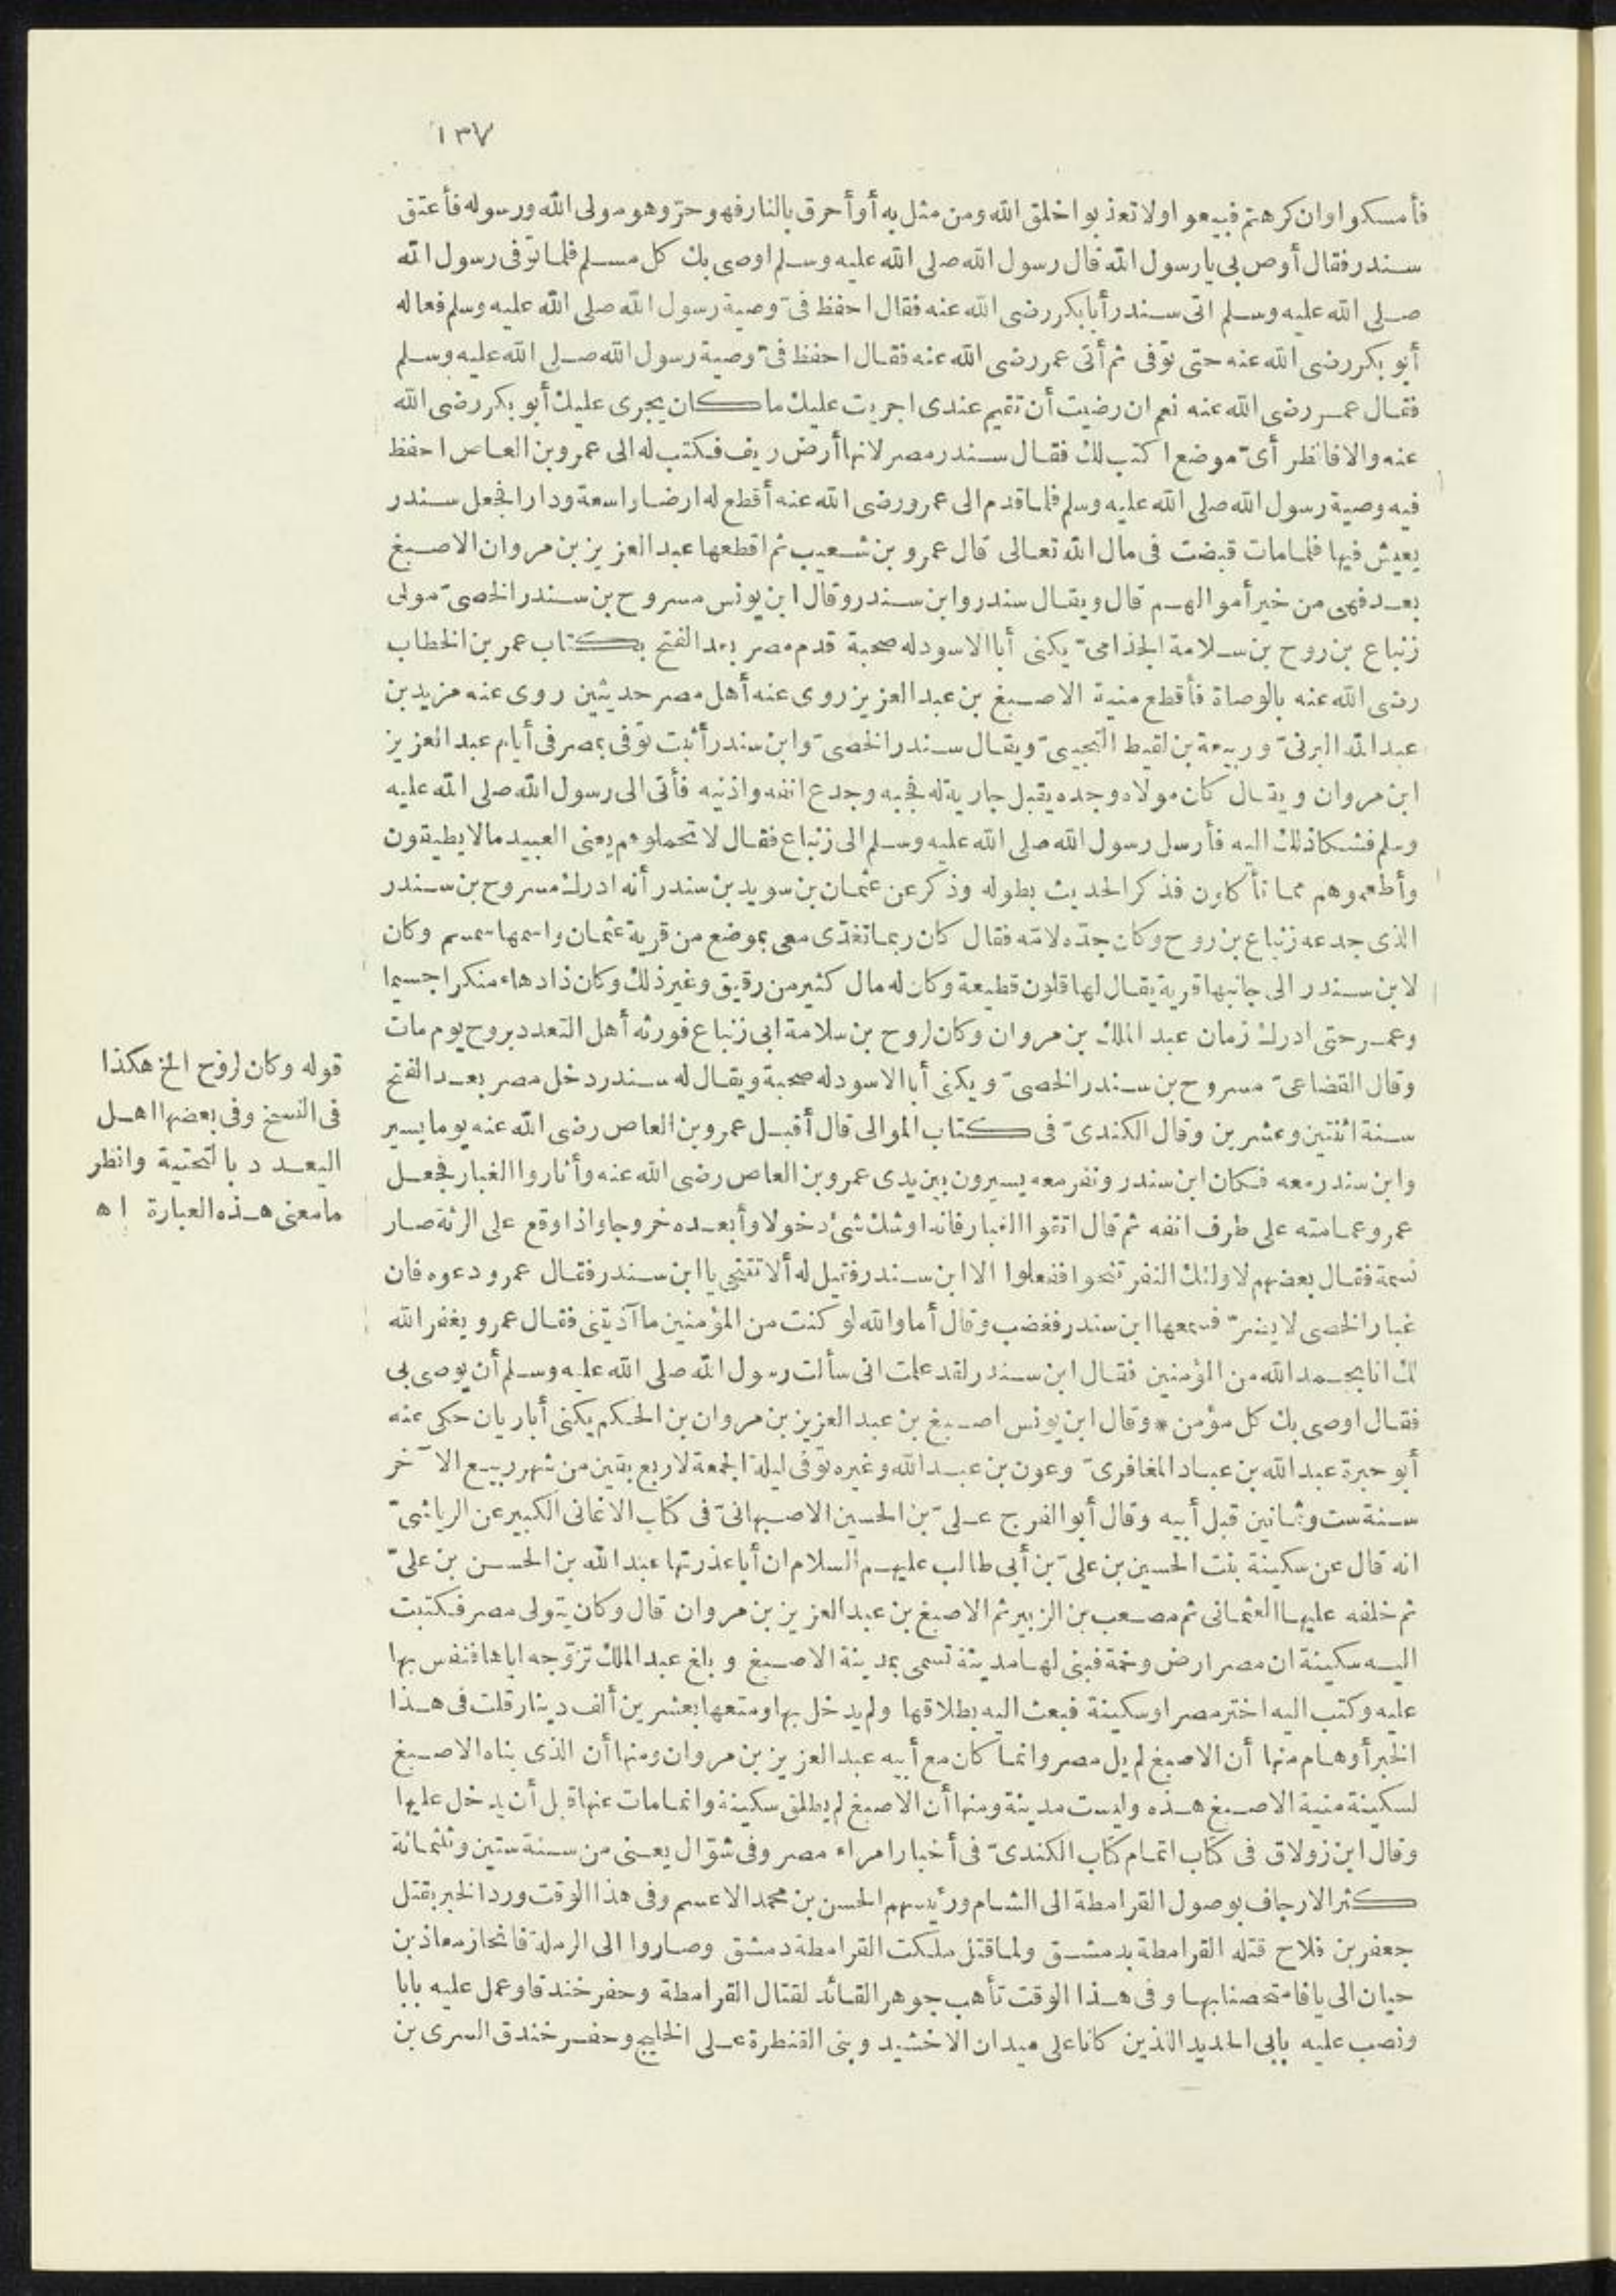 ١٣٧
فأمسكوا وان كرهتم فبيعوا ولا تعذبوا خلق الله ومن مثل به أو أحرق بالنار فهو حرّ وهو مولى الله ورسوله فأعتق
سندر فقال أوص بى يا رسول الله قال رسول الله صلى الله عليه وسلم اوصى بك كل مسلم فلما توفى رسول الله
صلى الله عليه وسلم اتى سندر أبا بكر رضى الله عنه فقال احفظ فىّ وصية رسول الله صلى الله عليه وسلم فعاله
أبو بكر رضى الله عنه حتى توفى ثم أتى عمر رضى الله عنه فقال احفظ فىّ وصية رسول الله صلى الله عليه وسلم
فقال عمر رضى الله عنه نعم ان رضيت أن تقيم عندى اجريت عليك ما كان يجرى عليك أبو بكر رضى الله
عنه والا فانظر أىّ موضع اكتب لك فقال سندر مصر لانها أرض ريف فكتب له الى عمرو بن العاص احفظ
فيه وصية رسول الله صلى الله عليه وسلم فلما قدم الى عمرو رضى الله عنه أقطع له ارضا واسعة ودارا فجعل سندر
يعيش فيها فلما مات قبضت فى مال الله تعالى قال عمرو بن شعيب ثم اقطعها عبد العزيز بن مروان الاصبغ
بعد فهى من خير أموالهم قال ويقال سندر وابن سندر وقال ابن يونس مسروح بن سندر الخصىّ مولى
زنباع بن روح بن سلامة الجذامىّ يكنى أبا الاسود له صحبة قدم مصر بعد الفتح بكتاب عمر بن الخطاب
رضى الله عنه بالوصاة فأقطع منية الاصبغ بن عبد العزيز روى عنه أهل مصر حديثين روى عنه مزيد بن
عبد الله اليزنىّ وربيعة بن لقيط التجيبىّ ويقال سندر الخصىّ وابن سندر أثبت توفى بمصر فى أيام عبد العزيز
ابن مروان ويقال كان مولاه وجده يقبل جارية له فجبه وجدع انفه واذنيه فأتى الى رسول الله صلى الله عليه
وسلم فشكا ذلك اليه فأرسل رسول الله صلى الله عليه وسلم الى زنباع فقال لا تحملوهم يعنى العبيد ما لا يطيقون
وأطعموهم مما تأكلون فذكر الحديث بطوله وذكر عن عثمان بن سويد بن سندر أنه ادرك مسروح بن سندر
الذى جدعه زنباع بن روح وكان جدّه لامّه فقال كان ربما تغدّى معى بموضع من قرية عثمان واسمها سمسم وكان
لابن سندر الى جانبها قرية يقال لها قلون قطيعة وكان له مال كثير من رقيق وغير ذلك وكان ذا دهاء منكرا جسيما
وعمر حتى ادرك زمان عبد الملك بن مروان وكان لروح بن سلامة ابى زنباع فورثه أهل التعدد بروح يوم مات
وقال القضاعىّ مسروح بن سندر الخصىّ ويكنى أبا الاسود له صحبة ويقال له سندر دخل مصر بعد الفتح
سنة اثنتين وعشرين وقال الكندىّ فى كتاب الموالى قال أقبل عمرو بن العاص رضى الله عنه يوما يسير
وابن سندر معه فكان ابن سندر ونفر معه يسيرون بين يدى عمرو بن العاص رضى الله عنه وأثاروا الغبار فجعل
عمرو عمامته على طرف انفه ثم قال اتقوا الغبار فانه اوشك شئ دخولا وأبعده خروجا واذا وقع على الرئة صار
نسمة فقال بعضهم لاولئك النفر تنحوا ففعلوا الا ابن سندر فقيل له ألا تتنحى يا ابن سندر فقال عمرو دعوه فان
غبار الخصى لا يضرّ فسمعها ابن سندر فغضب وقال أما والله لو كنت من المؤمنين ما آذيتنى فقال عمرو يغفر الله
لك انا بحمد الله من المؤمنين فقال ابن سندر لقد علمت انى سألت رسول الله صلى الله عليه وسلم أن يوصى بى
فقال اوصى بك كل مؤمن * وقال ابن يونس اصبغ بن عبد العزيز بن مروان بن الحكم يكنى أبا ريان حكى عنه
أبو حبرة عبد الله بن عباد المغافرىّ وعون بن عبد الله وغيره توفى ليلة الجمعة لاربع بقين من شهر ربيع الآخر
سنة ست وثمانين قبل أبيه وقال أبو الفرج علىّ بن الحسين الاصبهانىّ فى كتاب الاغانى الكبير عن الرياشىّ
انه قال عن سكينة بنت الحسين بن علىّ بن أبى طالب عليهم السلام ان أبا عذرتها عبد الله بن الحسن بن علىّ
ثم خلفه عليها العثمانى ثم مصعب بن الزبير ثم الاصبغ بن عبد العزيز بن مروان قال وكان يتولى مصر فكتبت
اليه سكينة ان مصر ارض وخمة فبنى لها مدينة تسمى بمدينة الاصبغ وبلغ عبد الملك تزوّجه اياها فنفس بها
عليه وكتب اليه اختر مصر او سكينة فبعث اليه بطلاقها ولم يدخل بها ومتعها بعشرين ألف دينار قلت فى هذا
الخبر أوهام منها أن الاصبغ لم يل مصر وانما كان مع أبيه عبد العزيز بن مروان ومنها أن الذى بناه الاصبغ
لسكينة منية الاصبغ هذه وليست مدينة ومنها أن الاصبغ لم يطلق سكينة وانما مات عنها قبل أن يدخل عليها
وقال ابن زولاق فى كتاب اتمام كتاب الكندىّ فى أخبار امراء مصر وفى شوّال يعنى من سنة ستين وثلثمائة
كثر الارجاف بوصول القرامطة الى الشام ورئيسهم الحسن بن محمد الاعسم وفى هذا الوقت ورد الخبر بقتل
جعفر بن فلاح قتله القرامطة بدمشق ولما قتل ملكت القرامطة دمشق وصاروا الى الرملة فانحاز معاذ بن
حيان الى يافا متحصنا بها وفى هذا الوقت تأهب جوهر القائد لقتال القرامطة وحفر خندقا وعمل عليه بابا
ونصب عليه بابى الحديد اللذين كانا على ميدان الاخشيد وبنى القنطرة على الخليج وحفر خندق السرى بن
قوله وكان لروح الخ هكذا
فى النسخ وفى بعضها اهل
اليعدد بالتحتية وانظر
ما معنى هذه العبارة اه